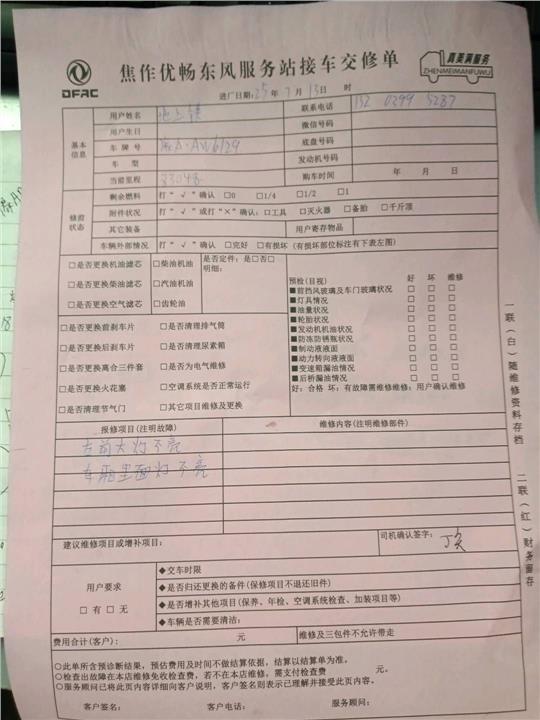 DFAC
焦作优畅东风服务站接车交修单
真美满服务
ZHENMEIMANFUWU
进厂日期:25年7月13日 时
基本信息
用户姓名
联系电话 152 0399 5287
用户生日 微信号码
车牌号 底盘号码
车型 发动机号码
当前里程 83048 购车时间 年 月 日
修前状态
剩余燃料 打“√”确认 □0 □1/4 □1/2 □1
附件状况 打“√”或打“×”确认:□工具 □灭火器 □备胎 □千斤顶
其它装备 用户寄存物品
车辆外部情况 打“√”确认 □完好 □有损坏(有损坏部位标注有下表左图)
□是否更换机油滤芯 □柴油机油 是否定件:是□否□
明细:
□是否更换柴油滤芯 □汽油机油
□是否更换空气滤芯 □齿轮油
□是否更换前刹车片 □是否清理排气筒
□是否更换后刹车片 □是否清理尿素箱
□是否更换离合三件套 □是否为电气维修
□是否更换火花塞 □空调系统是否正常运行
□是否清理节气门 □其它项目维修及更换
预检(目视) 好 坏 维修
■前挡风玻璃及车门玻璃状况 □ □ □
■灯具情况 □ □ □
■油量状况 □ □ □
■轮胎状况 □ □ □
■发动机机油状况 □ □ □
■防冻防锈瓶状况 □ □ □
■制动液液面 □ □ □
■动力转向液液面 □ □ □
■变速箱漏油情况 □ □ □
■后桥漏油情况 □ □ □
好:合格 坏:有故障需维修维修:用户确认维修
报修项目(注明故障) 维修内容(注明维修部件)
右前大灯不亮
车厢里面灯不亮
建议维修项目或增补项目: 司机确认签字:
用户要求
□有□无
◆交车时限
◆是否归还更换的备件(保修项目不退还旧件)
◆是否增补其他项目(保养、年检、空调系统检查、加装项目等)
◆车辆是否需要清洁:
费用合计(客户): 元 维修及三包件不允许带走
○此单所含预诊断结果,预估费用及时间不做结算依据,结算以结算单为准。
○检查出故障在本店维修免收检查费,若不在本店维修,需支付检查费 元。
○服务顾问已将此页内容详细向客户说明,客户签名则表示已理解并接受此页内容。
客户签名: 客户电话: 服务顾问:
一联(白)随维修资料存档 二联(红)财务留存